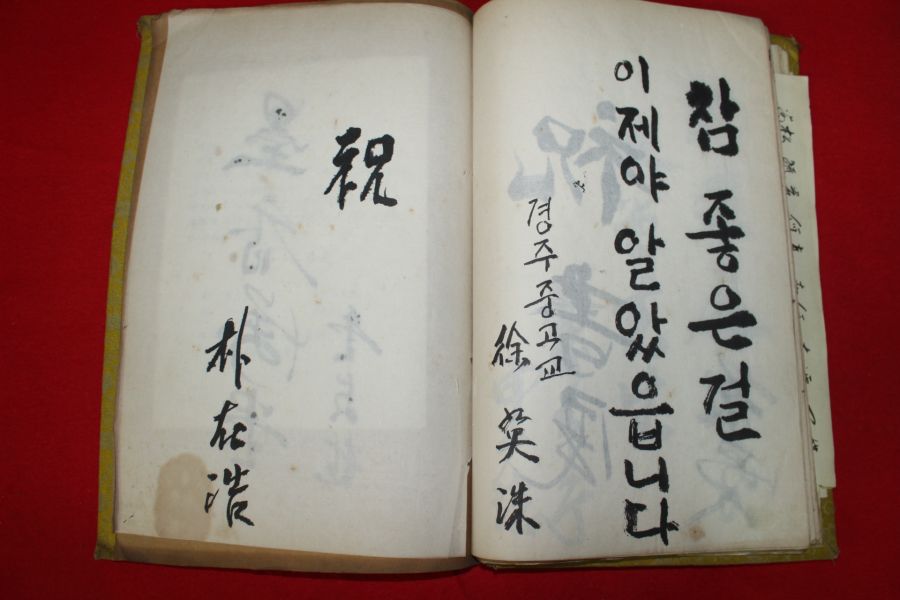 참 좋은 걸
이제야 알았읍니다
경주중고교
徐癸洙
祝
朴在浩